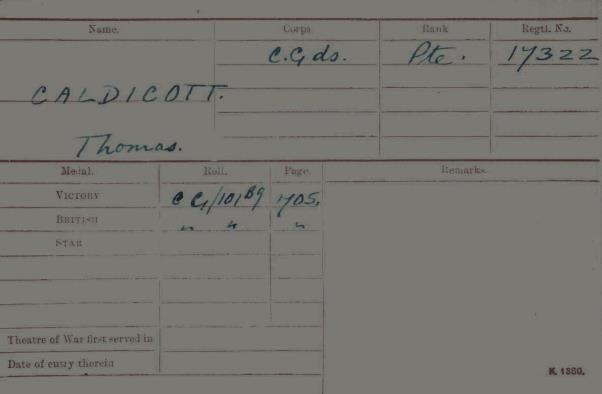 Name. Corps Rank Regtl. No.
C.Gds. Pte. 17322
CALDICOTT.
Thomas.
Medal. Roll. Page. Remarks.
VICTORY CG/101B9 705.
BRITISH " " "
STAR
Theatre of War first served in
Date of entry therein
K 1380.